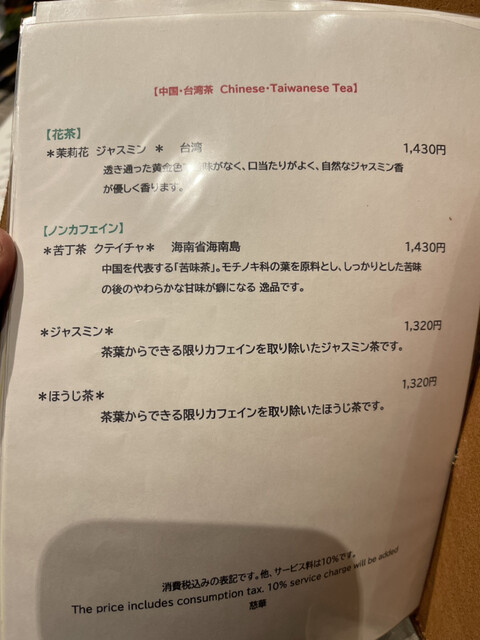 【中国・台湾茶 Chinese・Taiwanese Tea】
【花茶】
＊茉莉花 ジャスミン ＊ 台湾 1,430円
透き通った黄金色 味がなく、口当たりがよく、自然なジャスミン香
が優しく香ります。
【ノンカフェイン】
＊苦丁茶 クテイチャ＊ 海南省海南島 1,430円
中国を代表する「苦味茶」。モチノキ科の葉を原料とし、しっかりとした苦味
の後のやわらかな甘味が癖になる 逸品です。
＊ジャスミン＊ 1,320円
茶葉からできる限りカフェインを取り除いたジャスミン茶です。
＊ほうじ茶＊ 1,320円
茶葉からできる限りカフェインを取り除いたほうじ茶です。
消費税込みの表記です。他、サービス料は10%です。
The price includes consumption tax. 10% service charge will be added
慈華